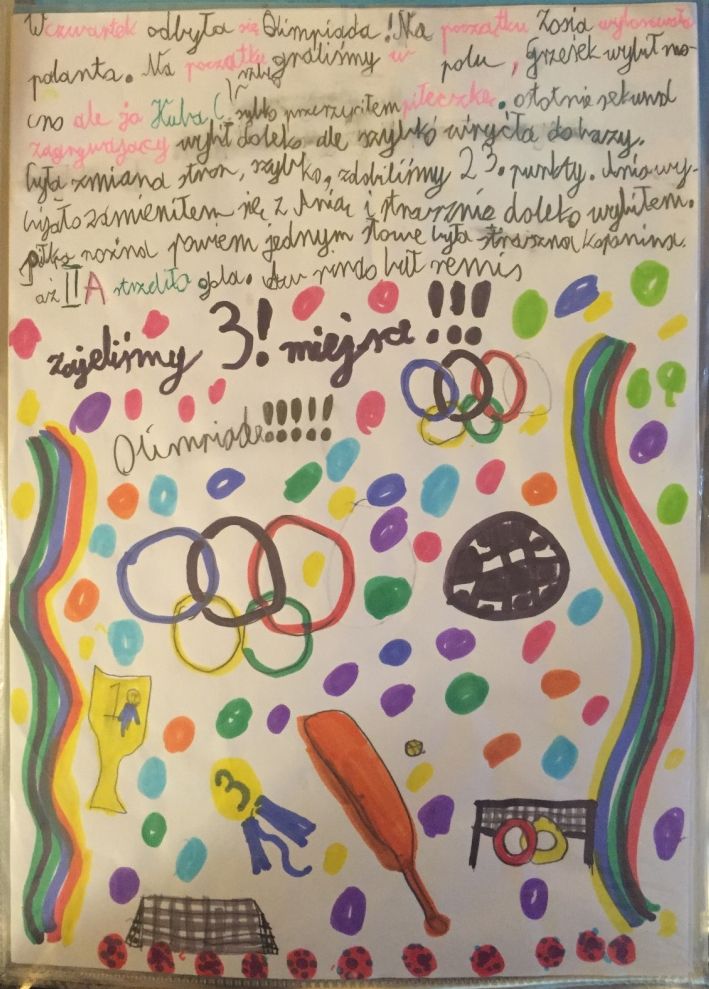 W czwartek odbyła się Olimpiada! Na początku Zosia wylosowała
palanta. Na początku graliśmy w polu, Grzesek wybił mo-
cno ale ja Kuba ( szybko przerzyciłem piłeczkę. ostatnie sekund
zagrywający wybił daleko ale szybko wruciła do bazy.
była zmiana stron, szybko, zdobiliśmy 23. punkty. Ania wy-
bijało zamieniłem się z Anią i strasznie daleko wybiłem.
piłka nożna powiem jednym słowe była straszna kopanina.
aż II A strzeliła gola. był remis
zajeliśmy 3! miejsce !!!
Olimpiada!!!!!
1
3